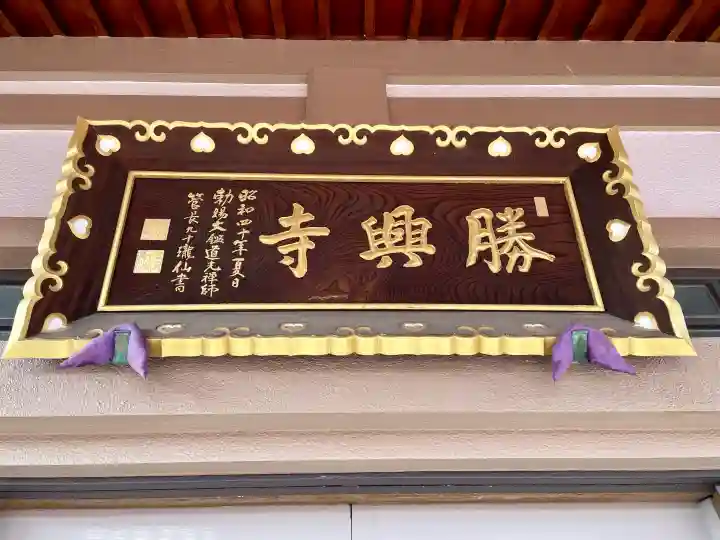 勝興寺
昭和四十年夏日
勅賜大鑑道光禅師
管長九十瓏仙書